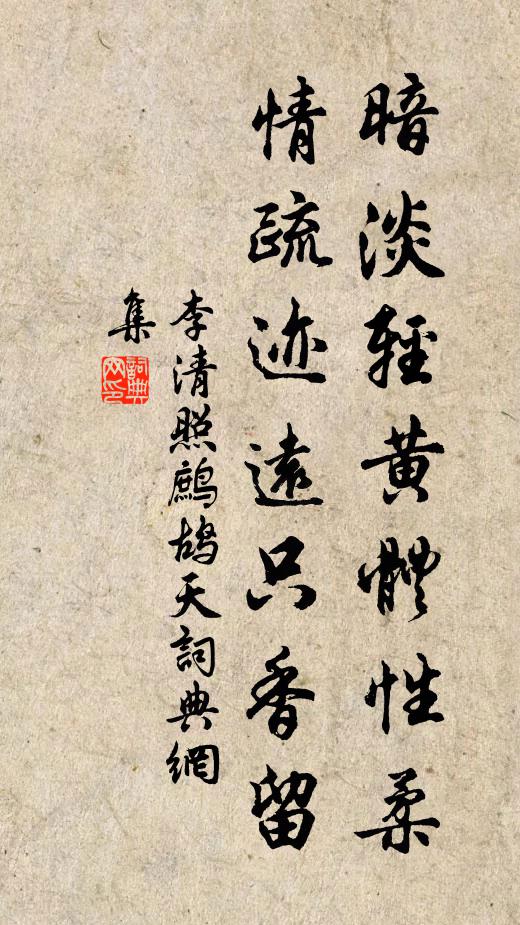 暗淡輕黃體性柔
情疏迹遠只香留
李清照鷓鴣天詞典網
集
詞典
网印